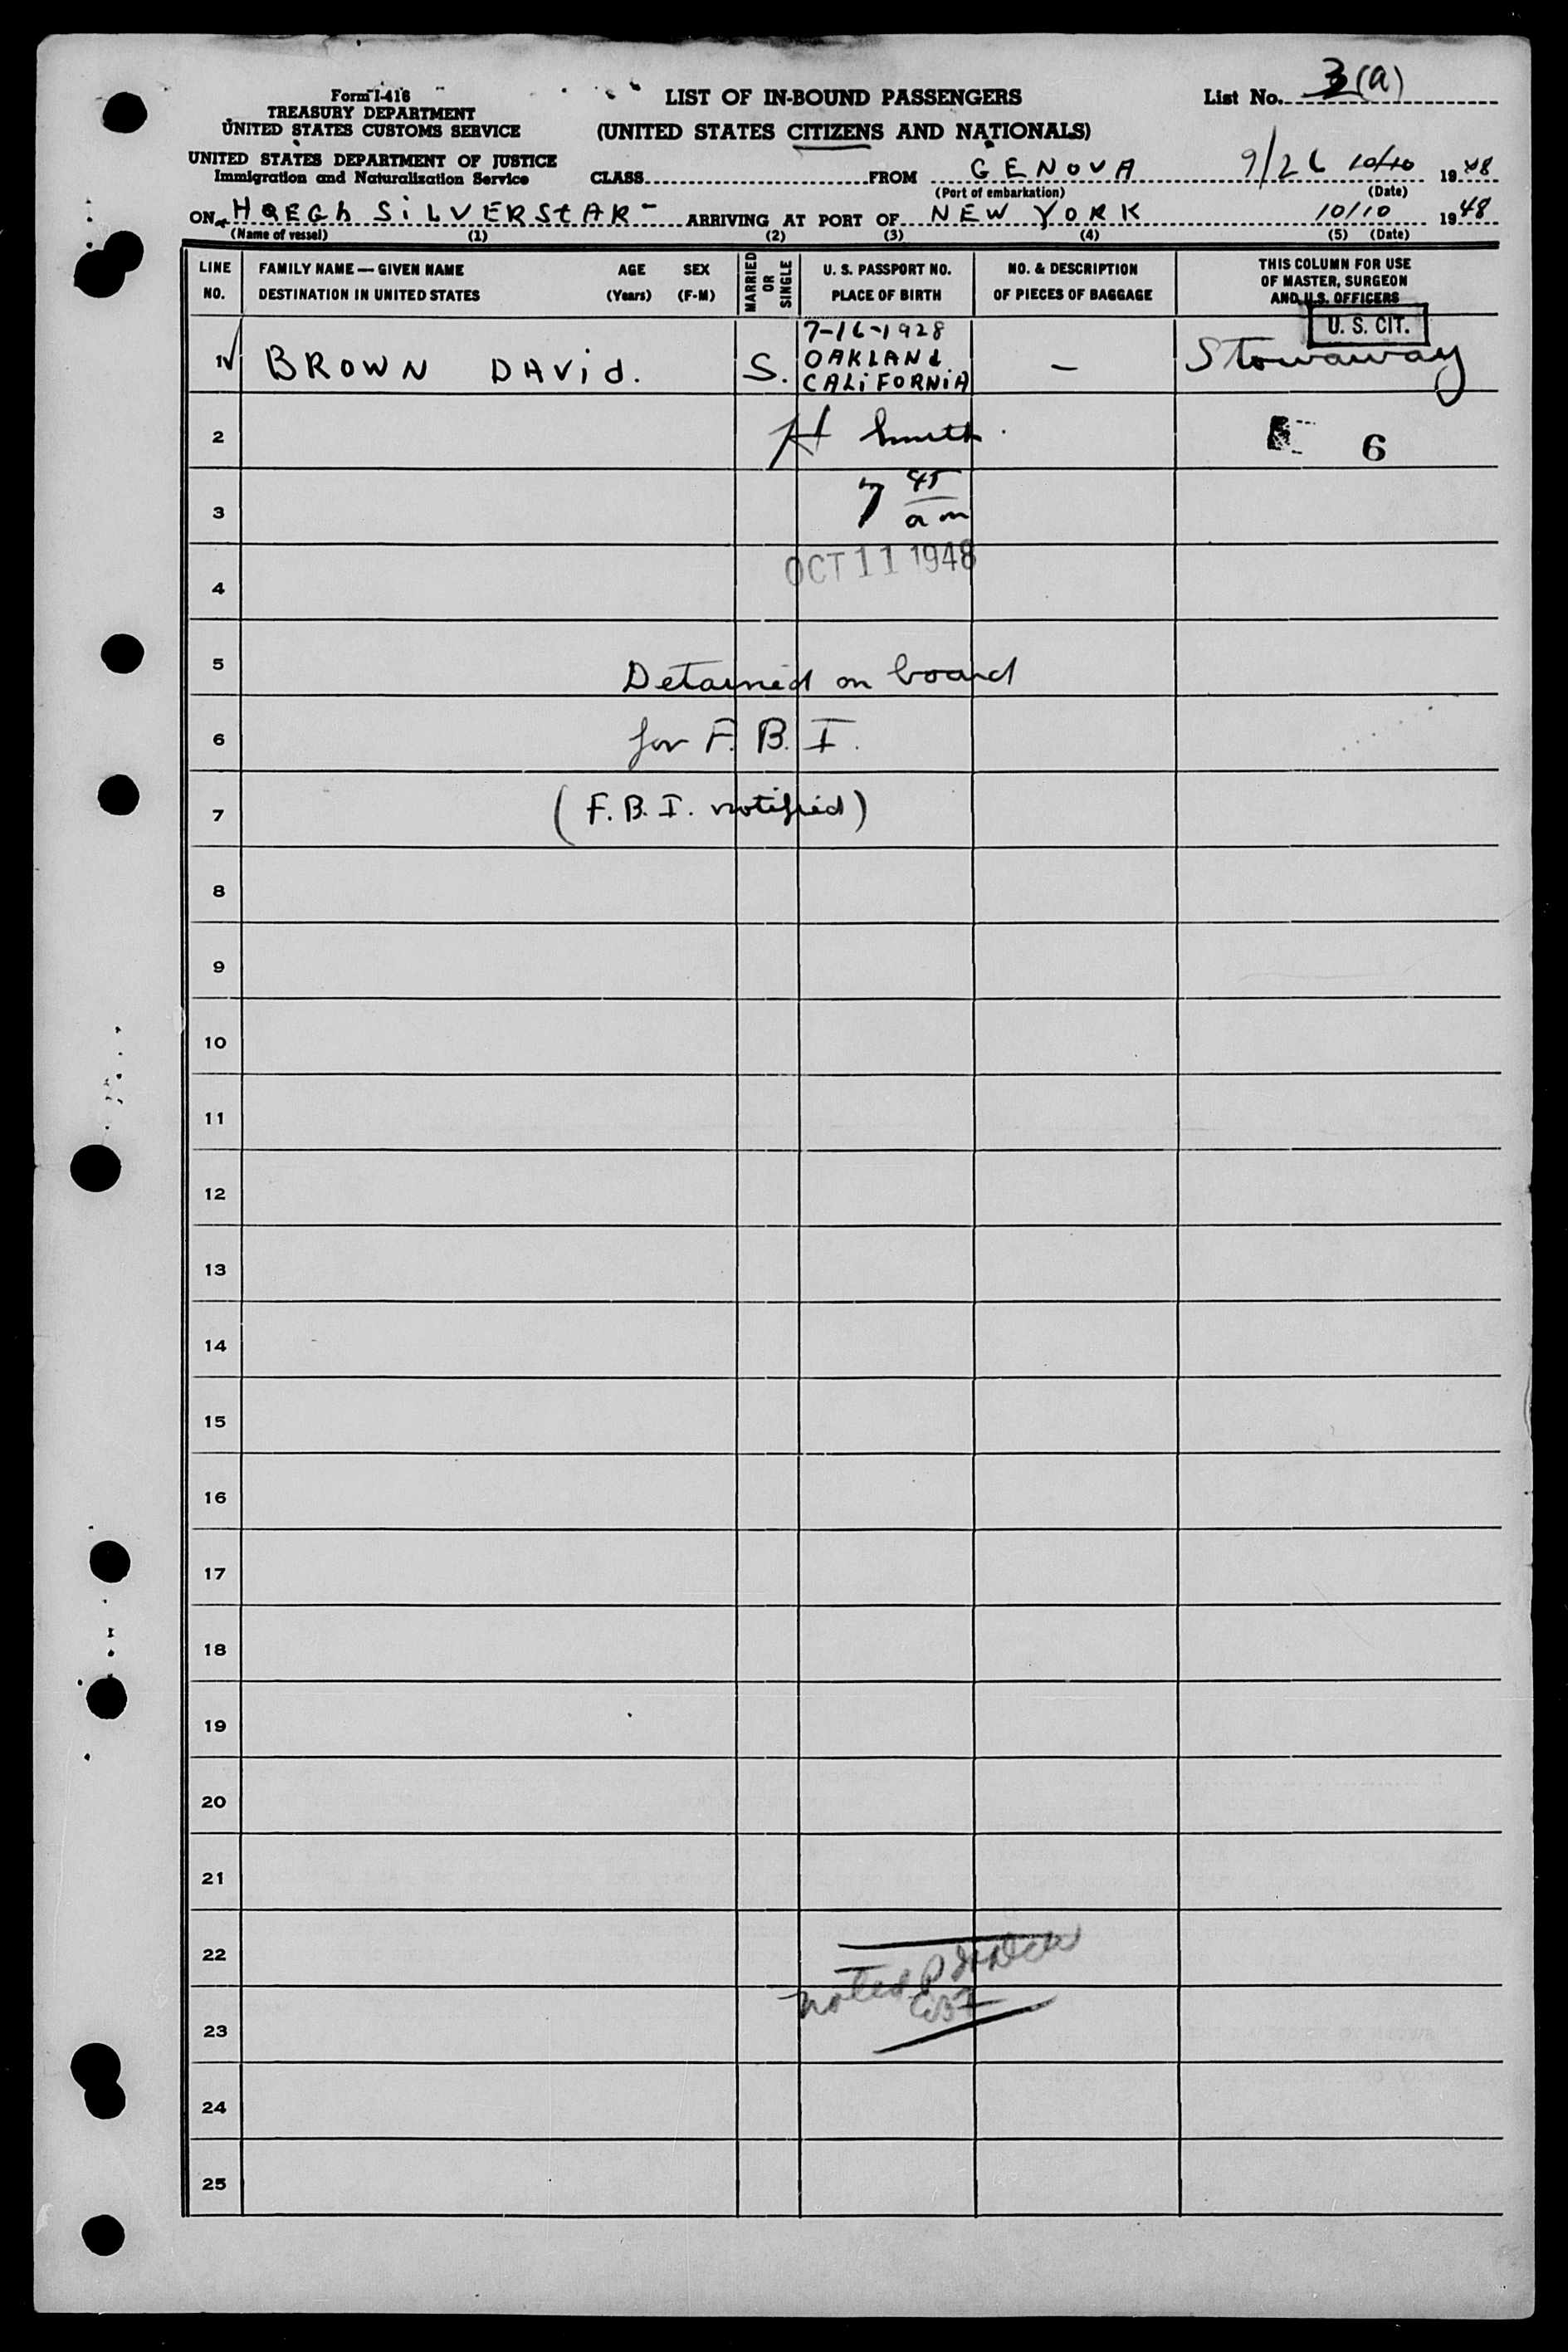 Form I-418
TREASURY DEPARTMENT
UNITED STATES CUSTOMS SERVICE
UNITED STATES DEPARTMENT OF JUSTICE
Immigration and Naturalization Service
LIST OF IN-BOUND PASSENGERS
(UNITED STATES CITIZENS AND NATIONALS)
List No. 3 (a)
CLASS FROM GENOVA 9/26 10/10 1948
(Port of embarkation) (Date)
ON HOEGh SiLVERStAR ARRIVING AT PORT OF NEW YORK 10/10 1948
(Name of vessel) (1) (2) (3) (4) (5) (Date)
LINE NO.
FAMILY NAME — GIVEN NAME AGE SEX
DESTINATION IN UNITED STATES (Years) (F-M)
MARRIED OR SINGLE
U. S. PASSPORT NO.
PLACE OF BIRTH
NO. & DESCRIPTION
OF PIECES OF BAGGAGE
THIS COLUMN FOR USE
OF MASTER, SURGEON
AND U.S. OFFICERS
U. S. CIT.
1 BROWN DAVid. S. 7-16-1928 OAKLANd CALiFORNiA – Stowaway
2 H Smith 6
3 7 45 am
4 OCT 11 1948
5 Detained on board
6 for F.B.I.
7 (F.B.I. notified)
8
9
10
11
12
13
14
15
16
17
18
19
20
21
22
noted
23
24
25